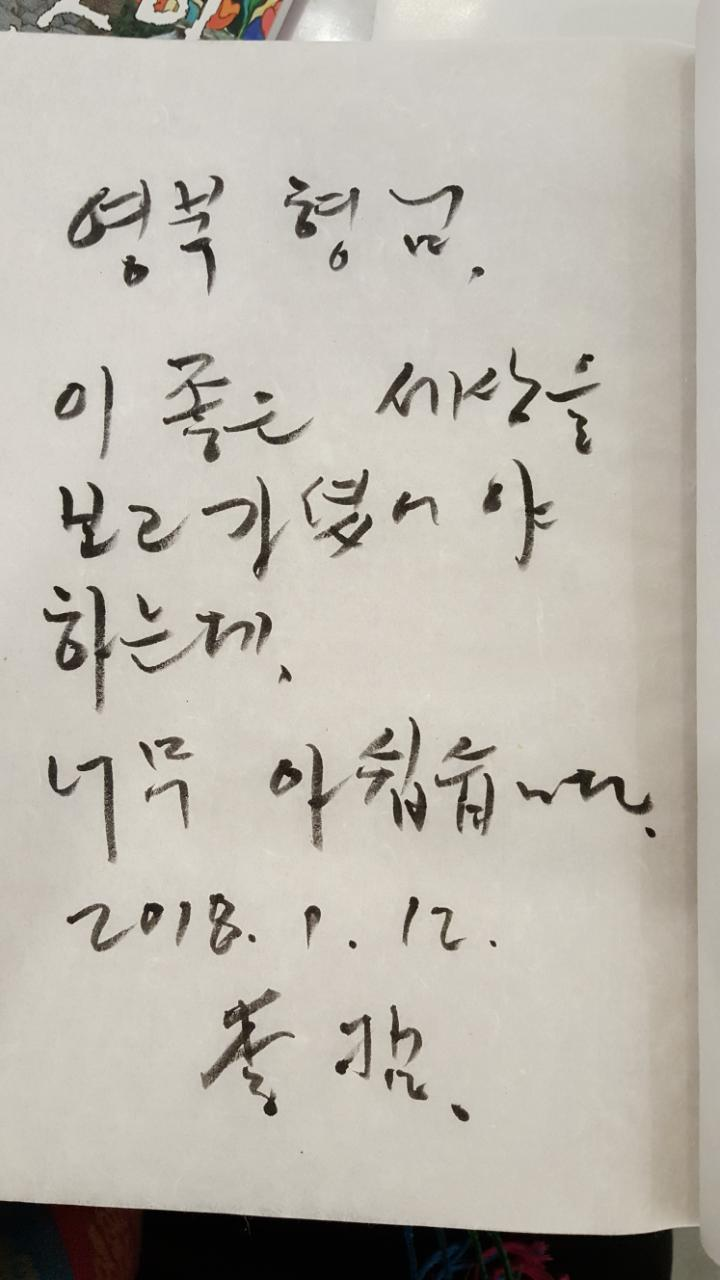 영복 형님.
이 좋은 세상을
보고 가셨어야
하는데.
너무 아쉽습니다.
2018. 1. 12.